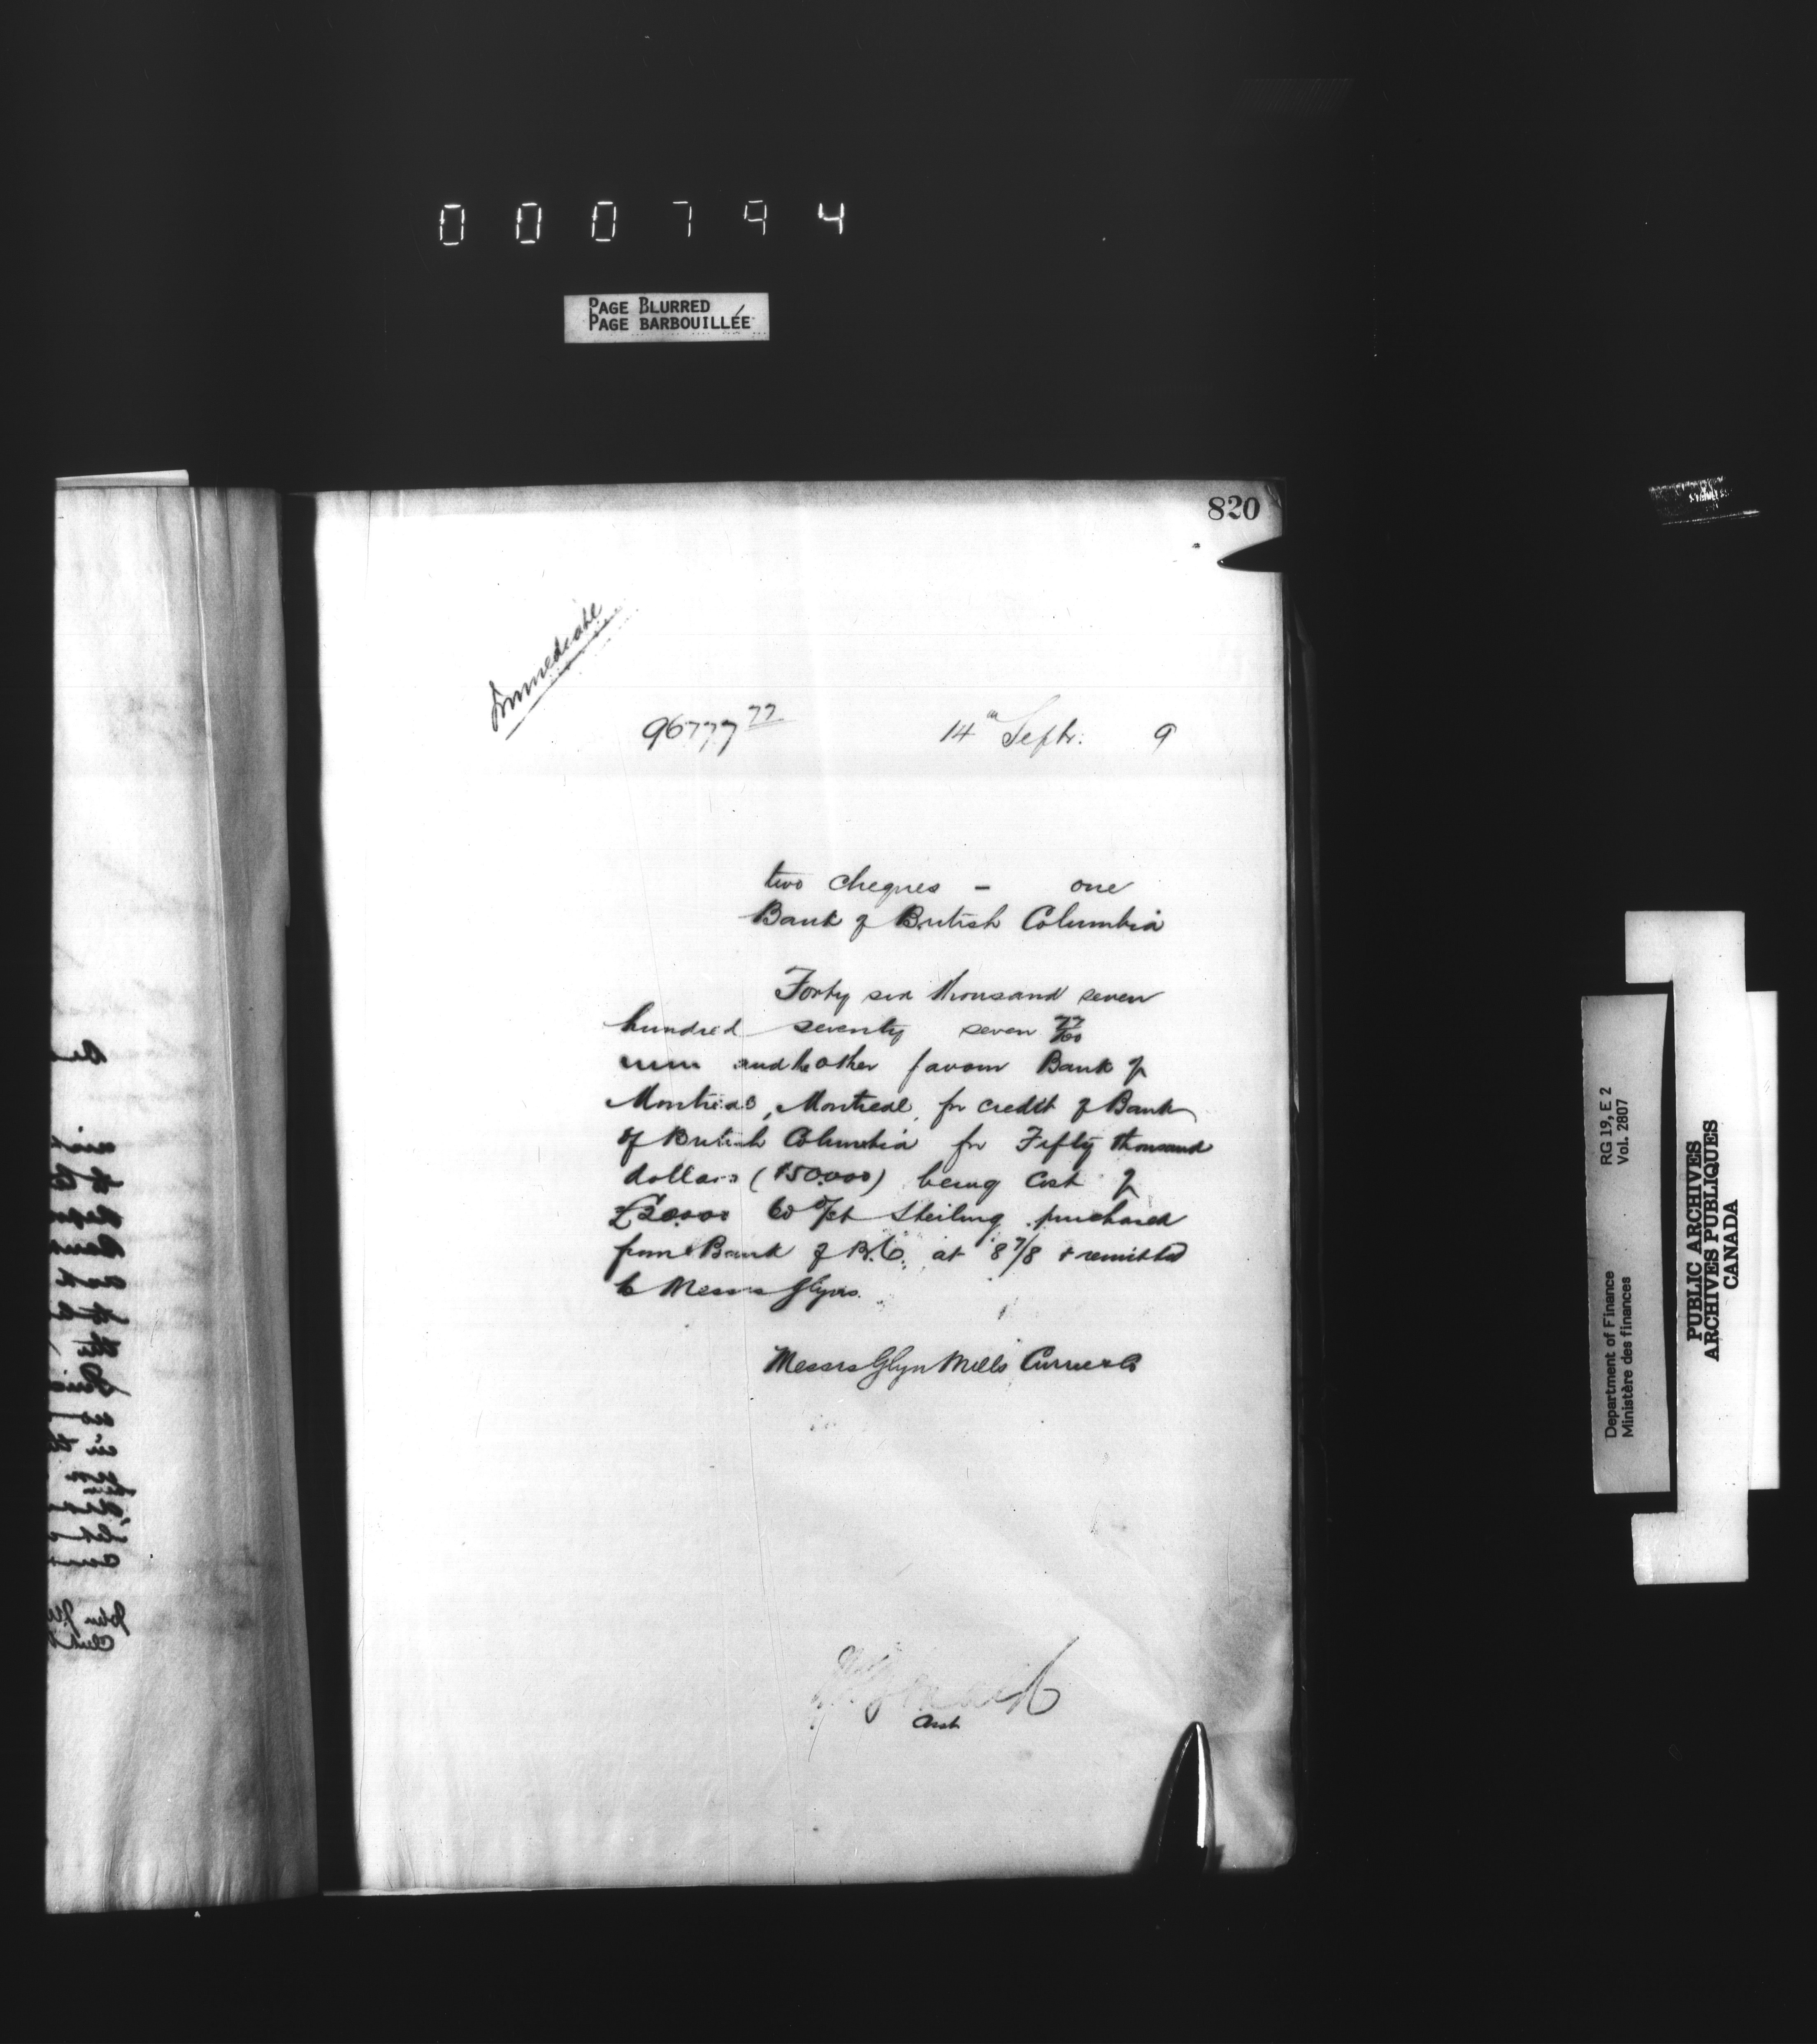 000794
PAGE BLURRED
PAGE BARBOUILLÉE
820
Immediate
96777 77
14th Septr. 9
two cheques - one
Bank of British Columbia
Forty six thousand seven
hundred seventy seven 77/100
and the other favour Bank of
Montreal, Montreal, for credit of Bank
of British Columbia for Fifty thousand
dollars ($50.000) being Cost of
£20.000 60 d/st Sterling purchased
from Bank of B.C. at 8 7/8 & remitted
to Messrs Glyns.
Messrs Glyn Mills Currie & Co
Asst
John
Department of Finance
Ministère des finances
RG 19, E 2
Vol. 2807
PUBLIC ARCHIVES
ARCHIVES PUBLIQUES
CANADA